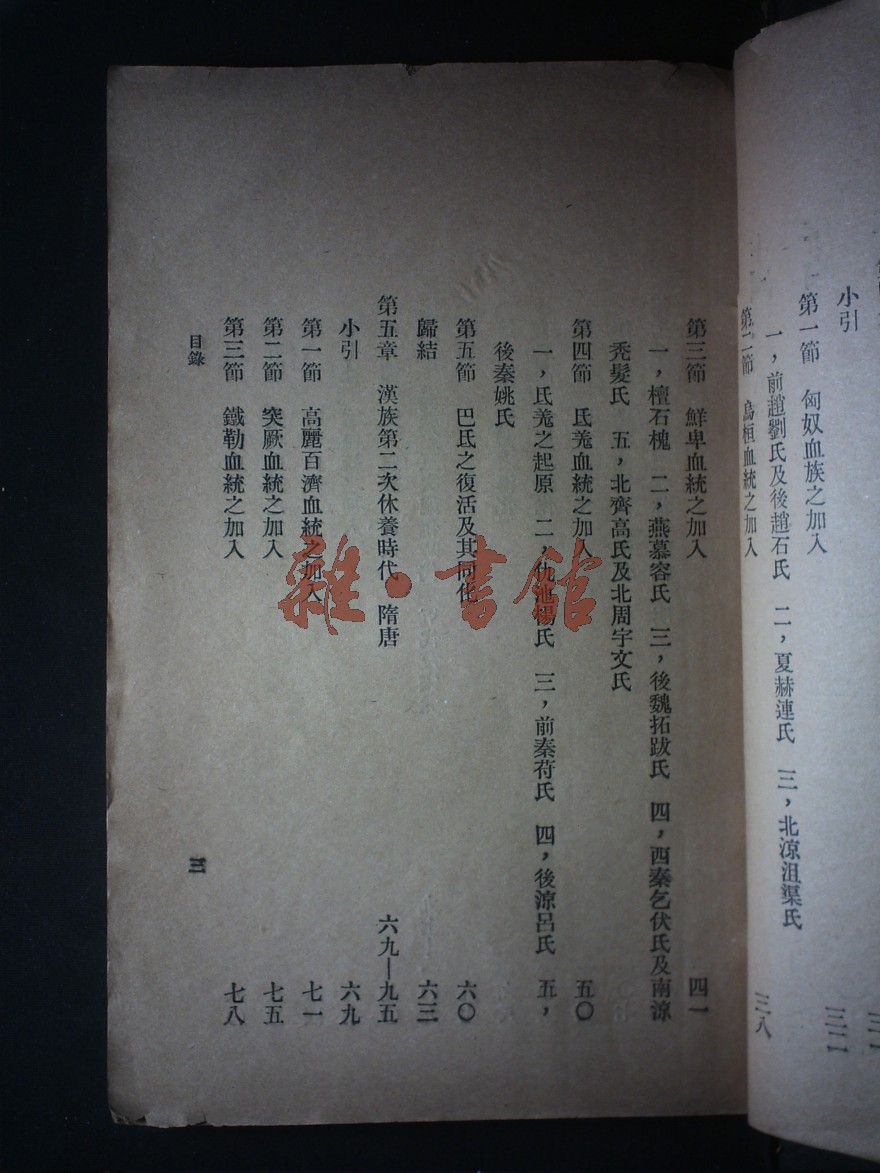 小引 三二
第一節 匈奴血族之加入
一，前趙劉氏及後趙石氏 二，夏赫連氏 三，北涼沮渠氏
第二節 烏桓血統之加入 三八
第三節 鮮卑血統之加入 四一
一，檀石槐 二，燕慕容氏 三，後魏拓跋氏 四，西秦乞伏氏及南涼
禿髮氏 五，北齊高氏及北周宇文氏
第四節 氐羌血統之加入 五〇
一，氐羌之起原 二，仇池楊氏 三，前秦苻氏 四，後涼呂氏 五，
後秦姚氏
第五節 巴氏之復活及其同化 六〇
歸結 六三
第五章 漢族第二次休養時代 隋唐 六九—九五
小引 六九
第一節 高麗百濟血統之加入 七一
第二節 突厥血統之加入 七五
第三節 鐵勒血統之加入 七八
目錄 三
雜·書館